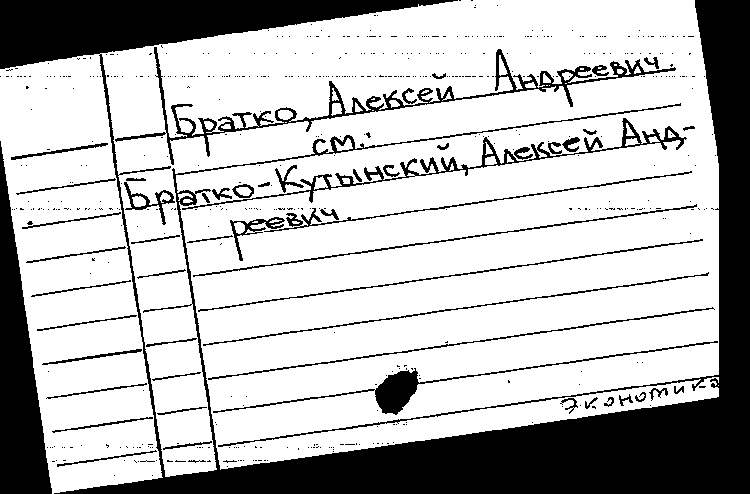 Братко, Алексей Андреевич.
см.:
Братко-Кутынский, Алексей Анд-
реевич.
экономика